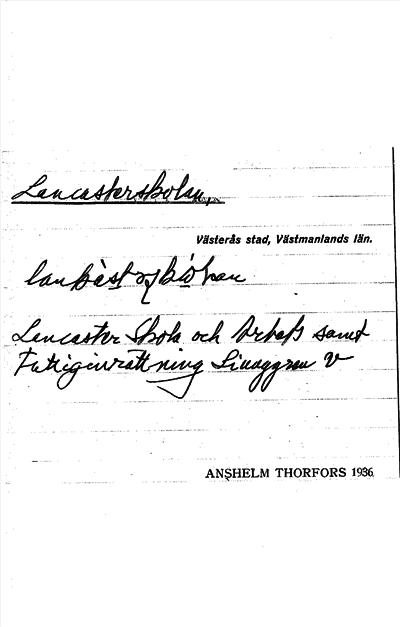 Lancasterskolan,
Västerås stad, Västmanlands län.
Lancaster Skola och Arbets samt
Fattiginrättning Linaggren V
ANSHELM THORFORS 1936